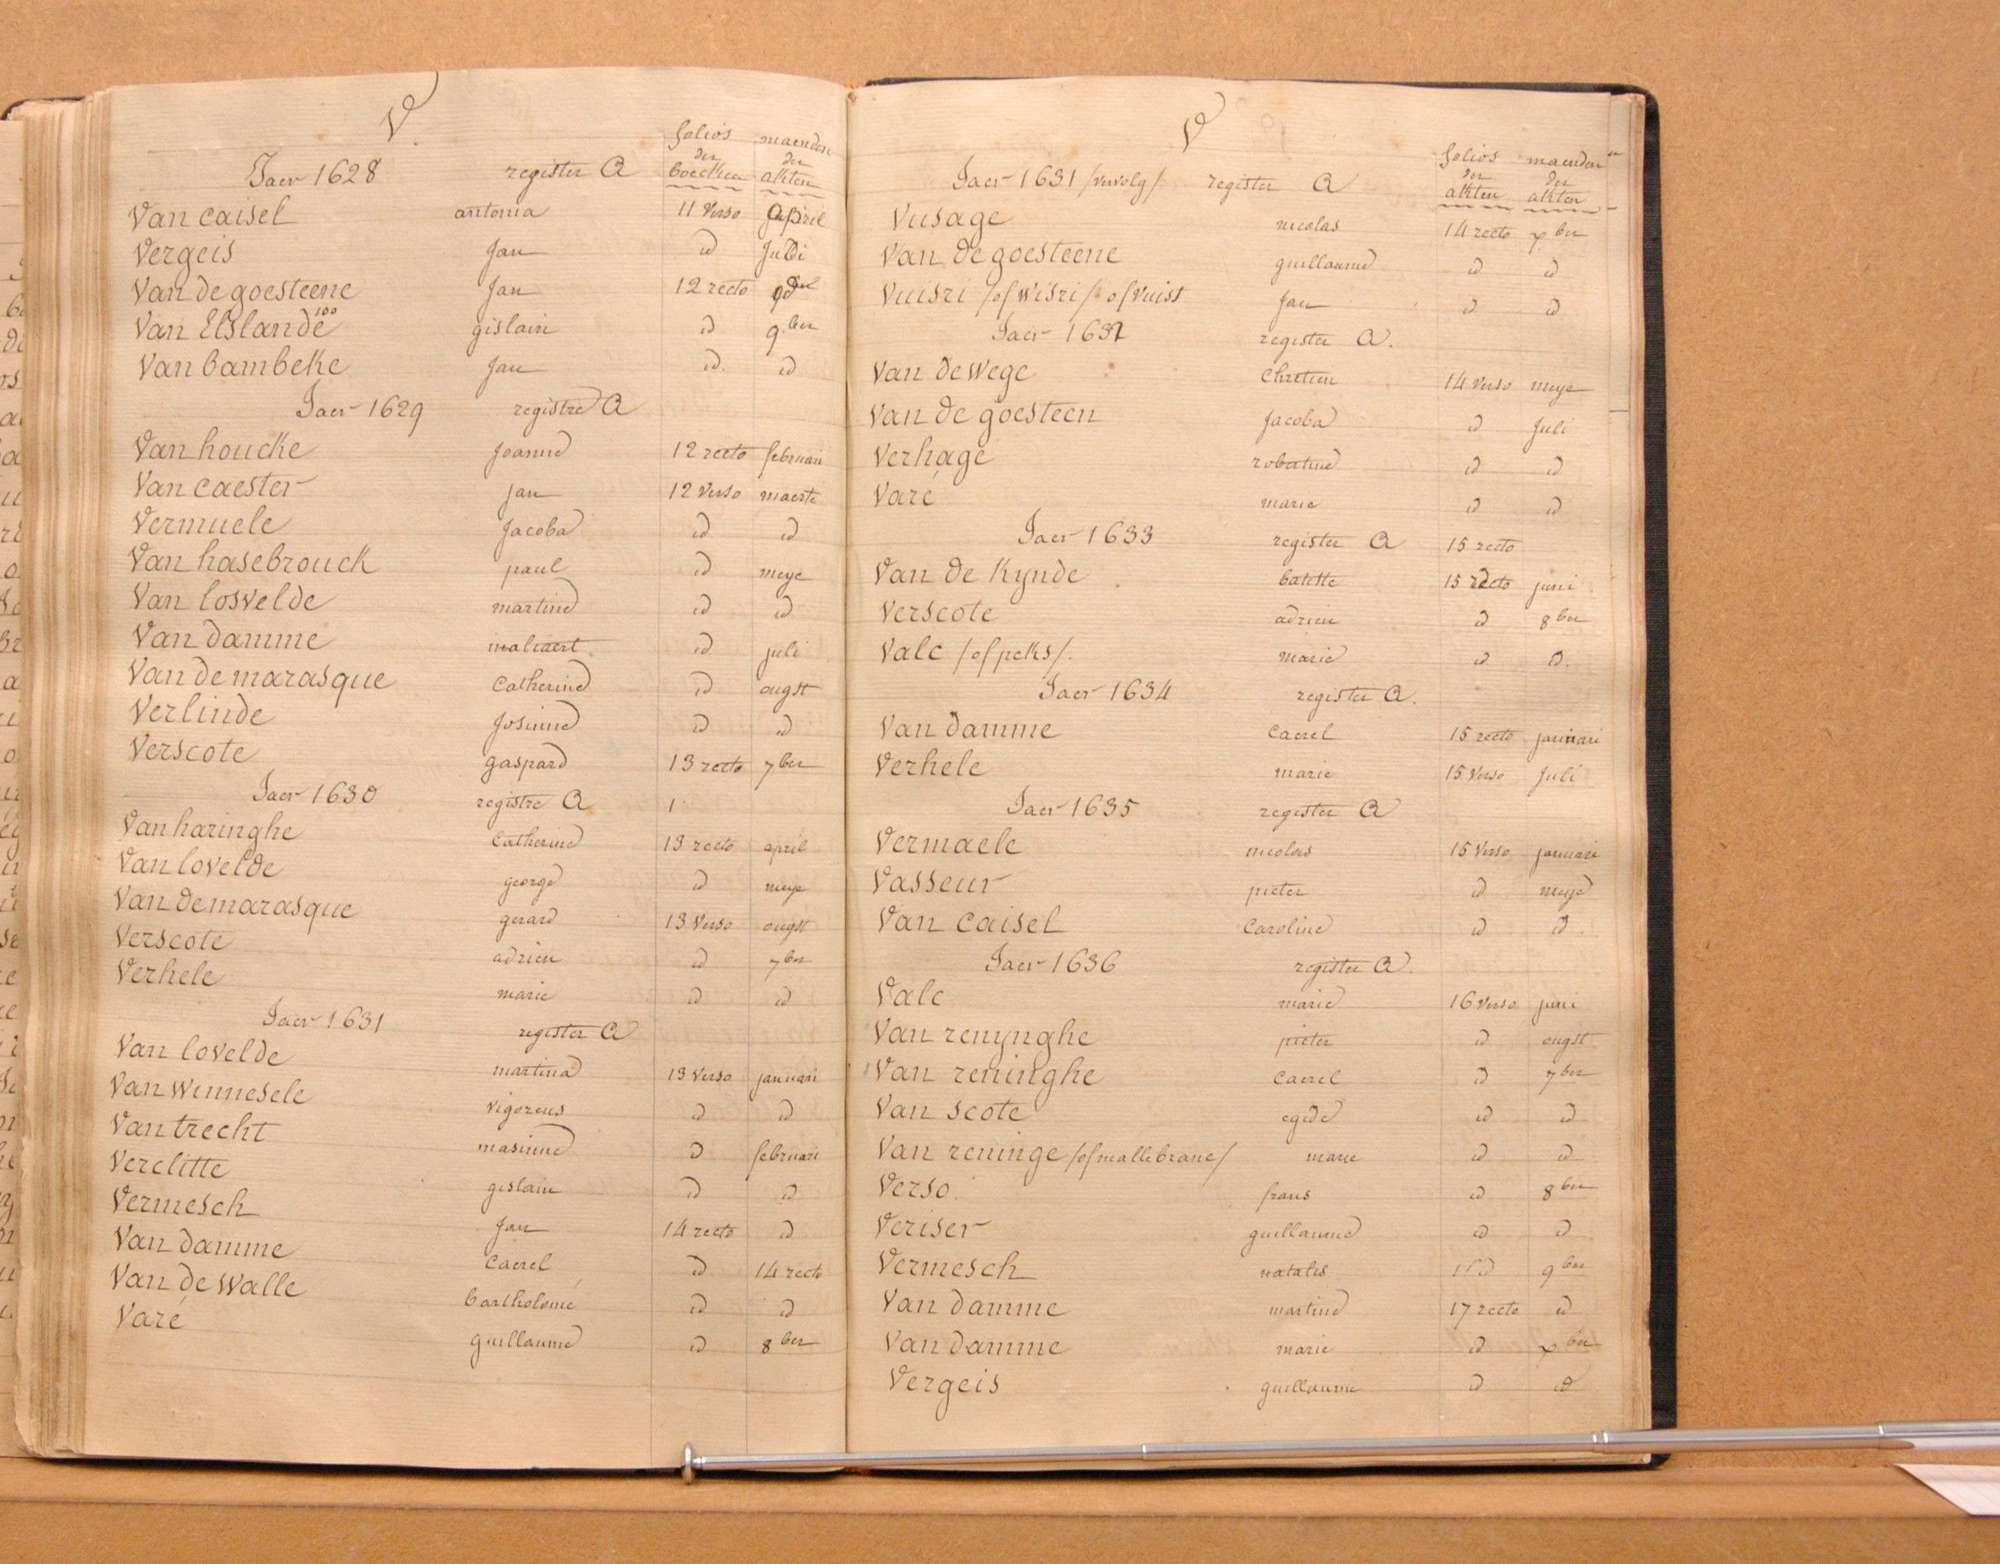 V
Jaer 1628 register A folios der boecken maenden der akten
Van caisel antonia 11 verso april
Vergeis Jan id Juli
Van de goesteene Jan 12 recto
Van Elslande gislain id 9ber
Van bambeke Jan id id
Jaer 1629 registre A
Van houcke Joanne 12 recto februari
Van caester jan 12 verso maerte
Vermuele Jacoba id id
Van hasebrouck paul id meye
Van losvelde martine id id
Van damme maliaert id juli
Van de marasque Catherine id ougst
Verlinde Josinne id id
Verscote gaspard 13 recto 7ber
Jaer 1630 registre A 1
Van haringhe Catherine 13 recto april
Van lovelde george id meye
Van de marasque gerard 13 verso ougst
Verscote adrien id 7ber
Verhele marie id id
Jaer 1631 register A
Van lovelde martina 13 verso januari
Van Winnesele vigoreus id id
Van trecht masinne id februari
Verclitte gislain id id
Vermesch Jan 14 recto id
Van damme Caerel id 14 recto
Van de Walle bartholomé id id
Varé guillaume id 8ber
V
Jaer 1631 /vervolg/ register A folios der akten maenden der akten
Vusage nicolas 14 recto xber
Van de goesteene guillaume id id
Vuisri /of wisri/ of vuist Jan id id
Jaer 1632 register A.
Van de Wege Chretien 14 verso meye
Van de goesteen Jacoba id Juli
Verhage robertine id id
Varé marie id id
Jaer 1633 register A 15 recto
Van de Kynde batiste 15 recto juni
Verscote adrien id 8ber
Valc /of peks/. marie id id.
Jaer 1634 register A.
Van damme Caerel 15 recto januari
Verhele marie 15 verso Juli
Jaer 1635 register A
Vermaele nicolas 15 verso januari
Vasseur pieter id meye
Van Caisel Caroline id id.
Jaer 1636 register A.
Valc marie 16 verso juni
Van renynghe pieter id ougst
Van reninghe Caerel id 7ber
Van scote egide id id
Van reninge /of mallebranc/ marie id id
Verso frans id 8ber
Veriser guillaume id id
Vermesch natalis id 9ber
Van damme martine 17 recto id
Van damme marie id xber
Vergeis guillaume id id